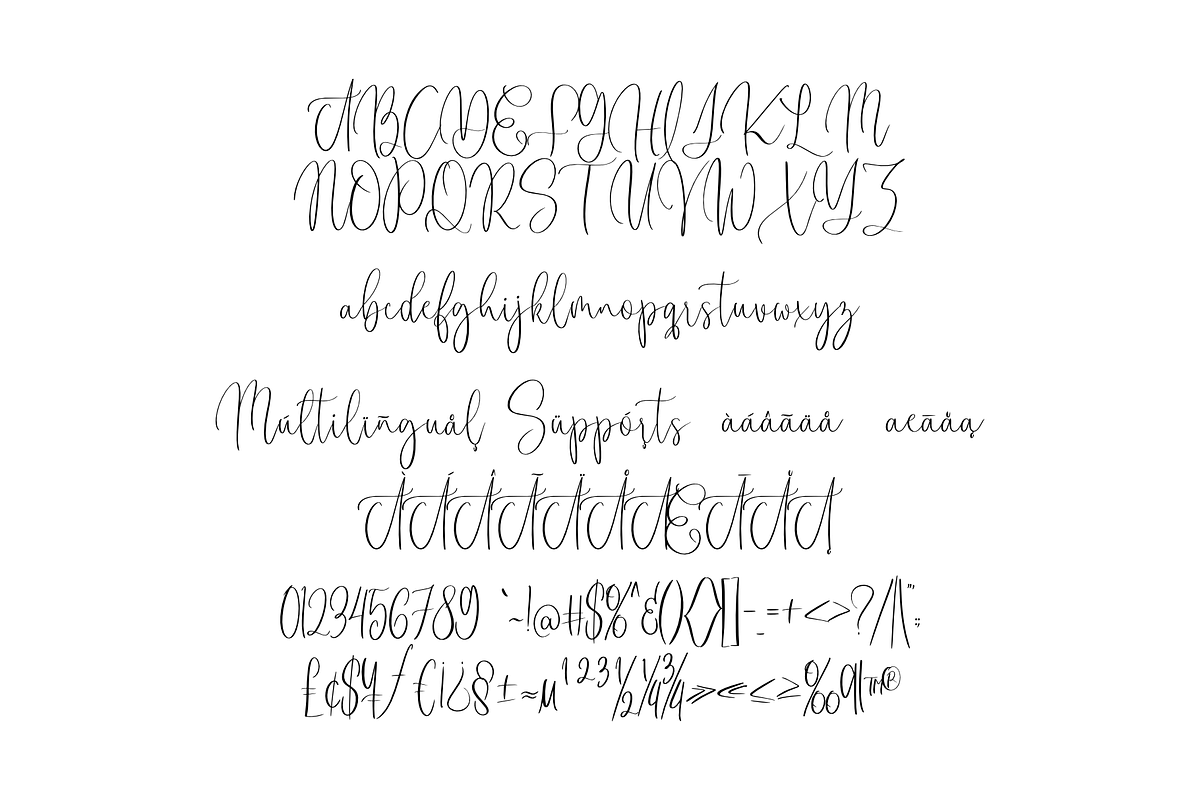 ABCDEFGHIJKLM
NOPQRSTUVWXYZ
abcdefghijklmnopqrstuvwxyz
Múltilïñguåļ Süppóŗts àáâãäå aeāåą
ÀÁÂÃÄÅÆĀĂĄ
0123456789 `~!@#$%^&(){}[]-_=+<>?/\|"':;
£¢$¥ƒ€¡¿§±≈µ¹²³½¼¾»«≤≥‰¶™®